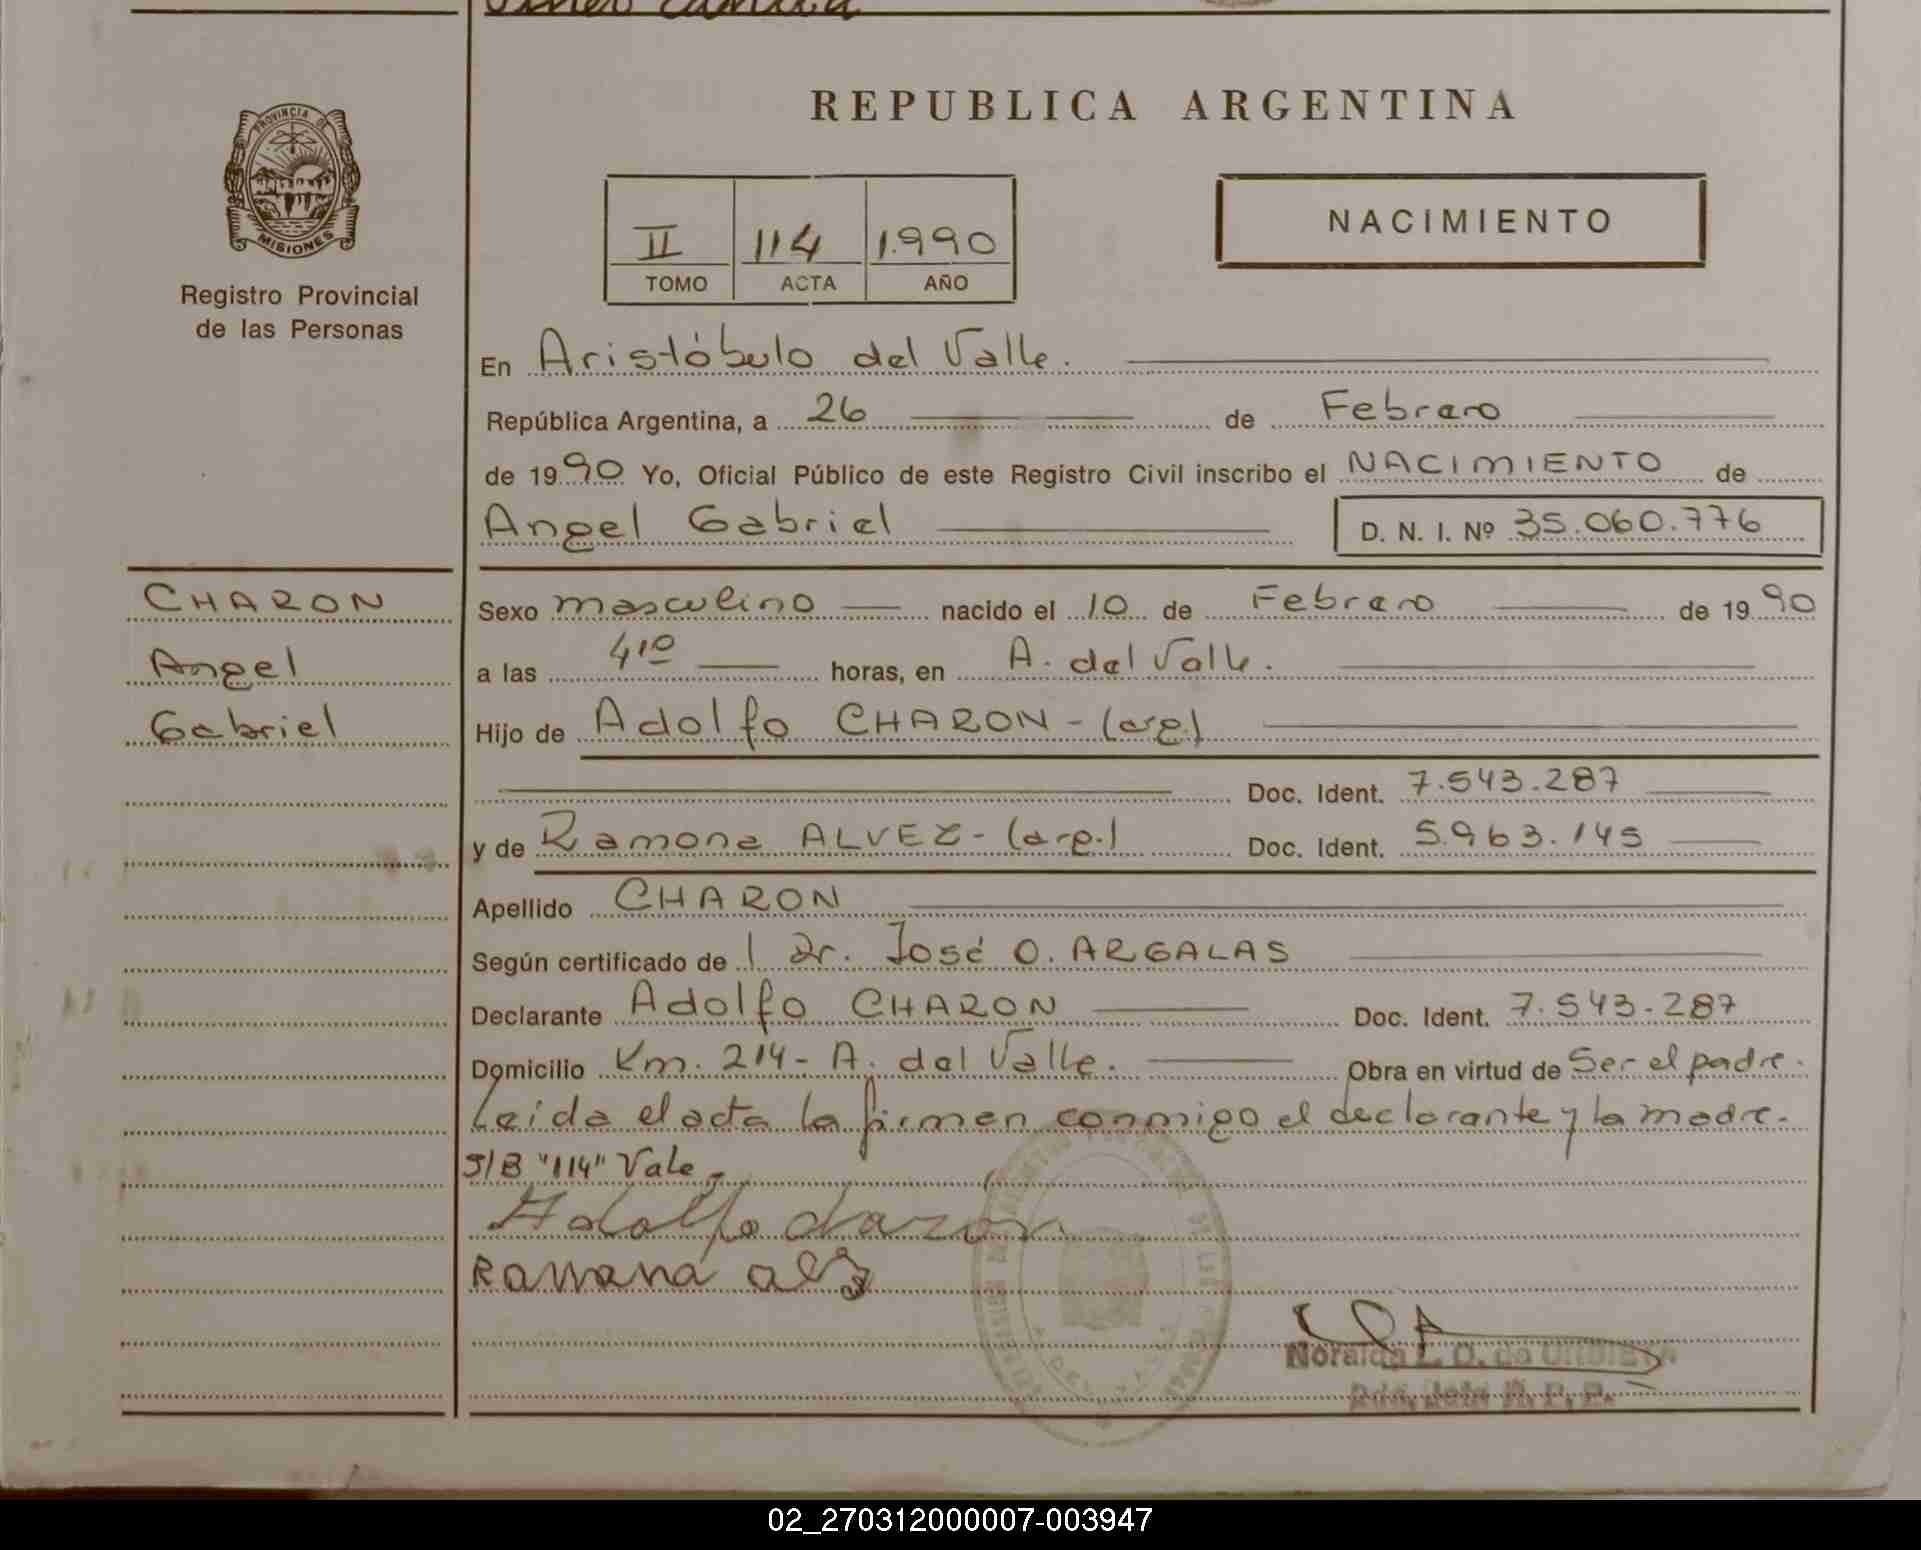 PROVINCIA DE
MISIONES
Registro Provincial
de las Personas
CHARON
Angel
Gabriel
REPUBLICA ARGENTINA
II 114 1.990
TOMO ACTA AÑO
NACIMIENTO
En Aristóbulo del Valle.
República Argentina, a 26 de Febrero
de 1990 Yo, Oficial Público de este Registro Civil inscribo el NACIMIENTO de
Angel Gabriel D. N. I. Nº 35.060.776
Sexo masculino nacido el 10 de Febrero de 1990
a las 4¹⁰ horas, en A. del Valle.
Hijo de Adolfo CHARON - (arg.)
Doc. Ident. 7.543.287
y de Ramona ALVEZ - (arg.) Doc. Ident. 5.963.145
Apellido CHARON
Según certificado de l Dr. José O. ARGALAS
Declarante Adolfo CHARON Doc. Ident. 7.543.287
Domicilio Km. 214 - A. del Valle. Obra en virtud de Ser el padre.
Leida el acta la firman conmigo el declarante y la madre.
S/B "114" Vale
Adolfo
Ramona
02_270312000007-003947